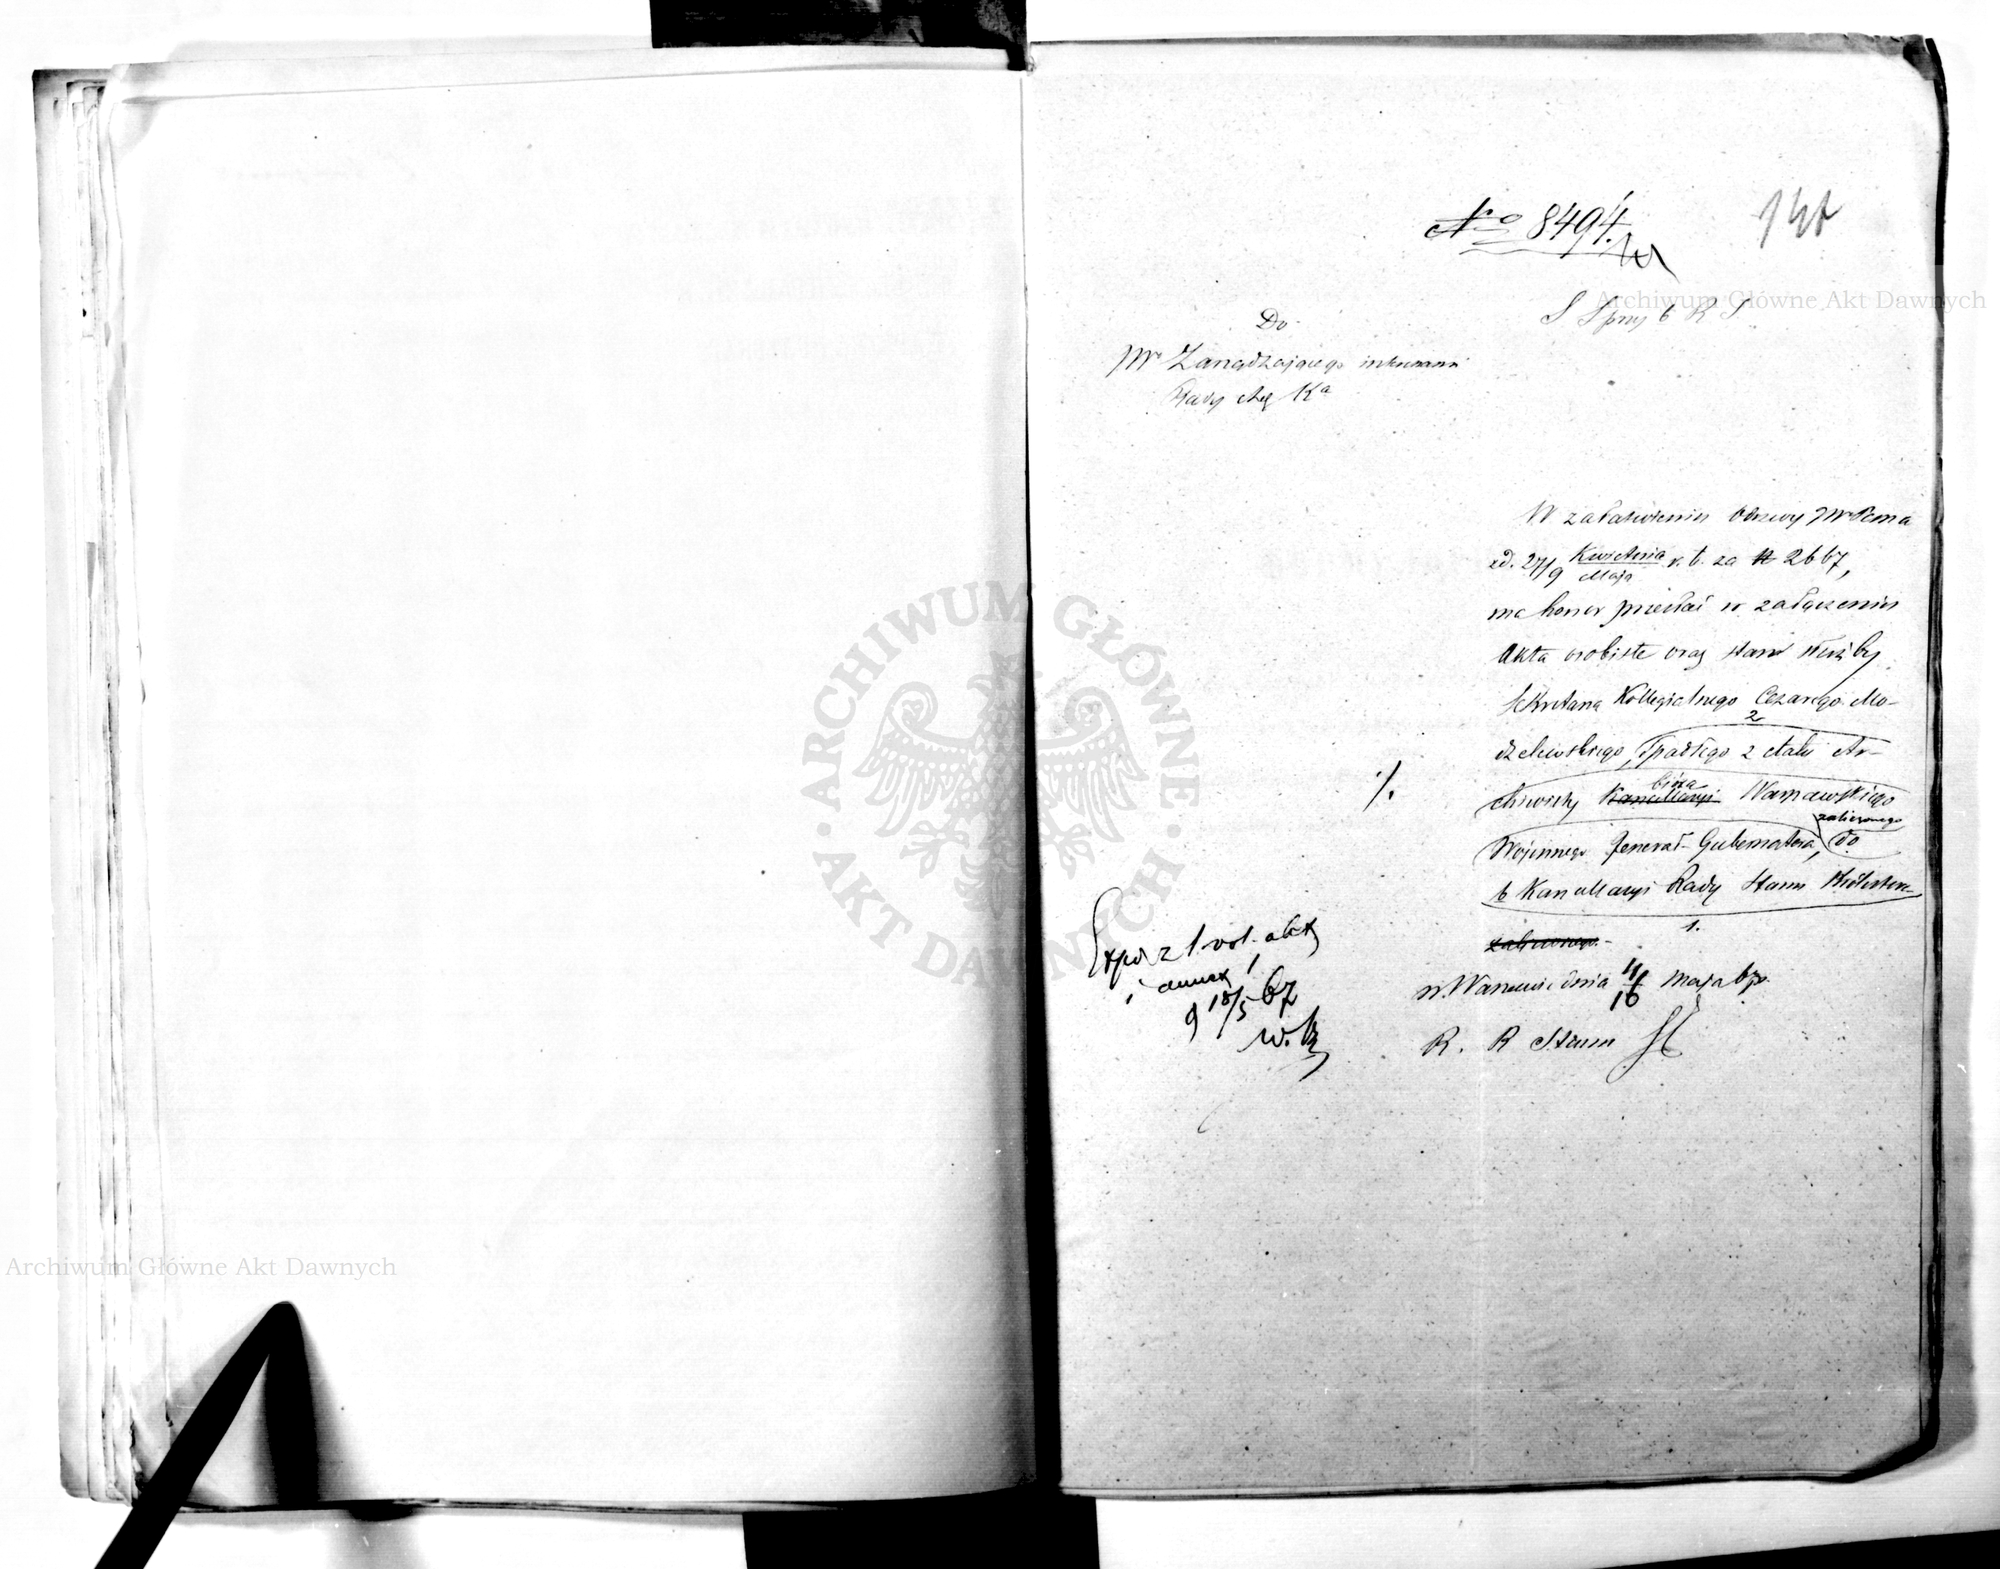 No 8494.
S Spraw b R S
Do
JW Zarządzającego interesami
Rady Adm Ka
W załatwieniu odezwy JW Pana
z d. 27/9 Kwietnia/Maja r. b. za N 2667,
ma honor przesłać w załączeniu
Akta osobiste oraz stan służby
Sekretarza Kollegialnego Cezarego Mo-
2
dzelewskiego, spadłego z etatu Ar-
chiwisty Kancellaryi biura Warszawskiego
zaliczonego
Wojennego Jenerał-Gubernatora, do
b Kancellaryi Rady Stanu Królestwa
1.
zaliczonego.
w Warszawie dnia 4/16 Maja 67 r.
R. R Stanu
%
Exped z 1 vol. akt
i annex 1
d 18/5 67
Archiwum Główne Akt Dawnych
Archiwum Główne Akt Dawnych
ARCHIWUM GŁÓWNE · AKT DAWNYCH ·